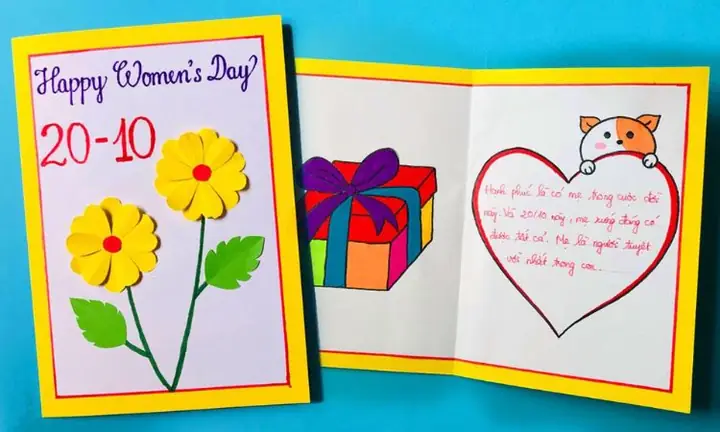 Happy Women's Day
20-10
Hạnh phúc là có mẹ trong cuộc đời
này. Và 20/10 này, mẹ xứng đáng có
được tất cả. Mẹ là người tuyệt
vời nhất trong con...